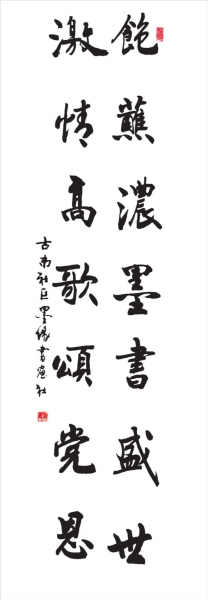 飽蘸濃墨書盛世
激情高歌頌党恩
古南社区墨缘書画社